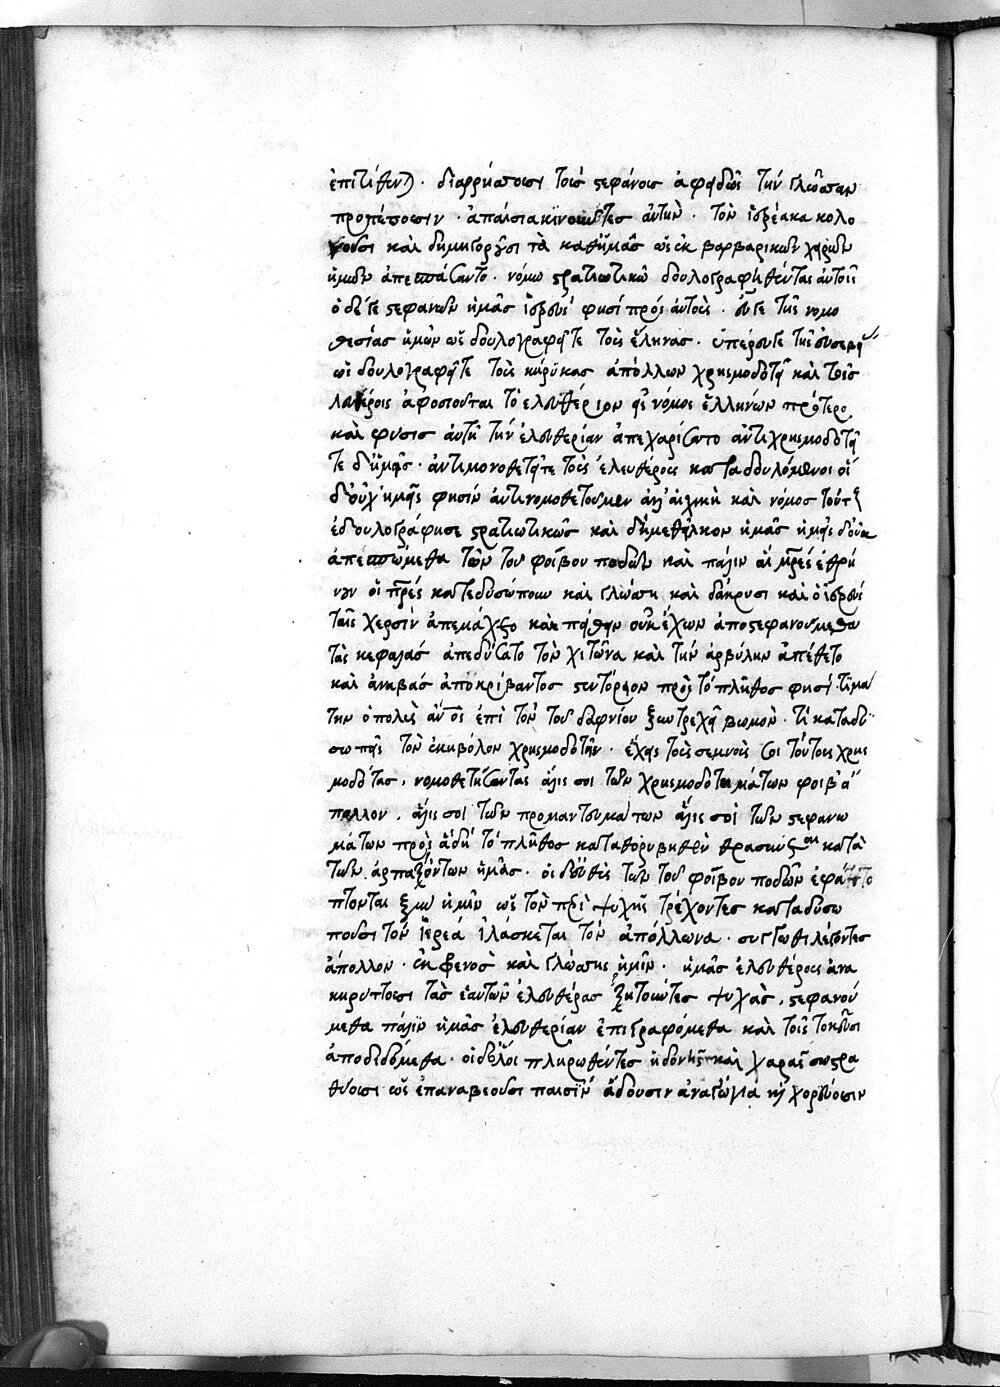 ἐπιτίθεντ(αι). διαρρήπτουσι τοὺς στεφάνους ἀφειδῶς τὴν γλῶτταν
προπέμπουσιν. ἀπαίσια κινοῦντες αὐτὴν. τὸν ἱερέα κακολο
γοῦσι καὶ δημηγοροῦσι τὰ καθ' ἡμᾶς ὡς ἐκ βαρβαρικῶν χειρῶν
ἡμῶν ἀπεσπάσαντο. νόμω στρατιωτικῶ δουλογραφηθέντας αὐτοῖς
ὁ δέ γε στεφανῶν ἡμᾶς ἱερεὺς φησὶ πρὸς αὐτοὺς. οὔτε τῆς νομο
θεσίας ἡμῶν ὡς δουλογραφεῖτε τοὺς ἕληνας.
ὡς δουλογραφεῖτε τοὺς κήρυκας ἀπόλλων χρησμοδοτεῖ καὶ τοῖς
ἀφοσιοῦται τὸ ἐλευθέριον εἰς νόμος ἑλλήνων πρότερο
καὶ φύσις αὐτὴ τὴν ἐλευθερίαν ἀπεχαρίσατο ἀντιχρησμοδοτεῖ
τε δ' ἡμεῖς. ἀντινομοθετεῖτε τοὺς ἐλευθέρους καταδουλόμενοι οἱ
δ' οὐχ ἡμεῖς φησὶν ἀντινομοθετοῦμεν ἀλλ' αἰχμὴ καὶ νόμος τούτους
ἐδουλογράφησε στρατιωτικῶς καὶ δὴ μεθεῖλκον ἡμᾶς ἡμεῖς δ' οὐκ
ἀπεσπώμεθα τῶν τοῦ φοίβου ποδῶν καὶ πάλιν αἱ μητέρες ἐθρή
νουν οἱ πατέρες κατεδυσώπουν καὶ γλώσση καὶ δάκρυσι καὶ ὁ ἱερεὺς
ταῖς χερσὶν ἀπεμάχετο καὶ πείθειν οὐκ ἔχων ἀποστεφανούμεθα
τὰς κεφαλὰς ἀπεδύσατο τὸν χιτῶνα καὶ τὴν ἀρβύλην ἀπέθετο
καὶ ἀναβὰς ἀπόκριβαντος στεντόρειον πρὸς τὸ πλῆθος φησί. τί μά
την ὁ πολὺς ἀνὴρ ἐπὶ τὸν τοῦ δαφνίου συντρέχει βωμὸν. τί καταδυ
σωπεῖς τὸν ἑκηβόλον χρησμοδότην. ἔχεις τοὺς σεμνοὺς σοι τούτους χρησ
μοδότας. νομοθετήσαντας ἅλις σοι τῶν χρησμοδοτημάτων φοιβ' ἄ
πολλον. ἅλις σοὶ τῶν προμαντευμάτων ἅλις σοὶ τῶν στεφανω
μάτων πρὸς ἃ δὴ τὸ πλῆθος καταθορυβηθὲν θρασύνεται κατὰ
τῶν ἁρπαζόντων ἡμᾶς. οἱ δ' εὐθὺς τῶν τοῦ φοίβου ποδῶν ἐφάπτο
πτονται σὺν ἡμῖν ὡς τὸν περὶ ψυχῆς τρέχοντες καταδυσω
ποῦσι τὸν ἱερέα ἱλάσκεται τὸν ἀπόλλωνα. συγγνωθι λέγοντες
ἄπολλον. ἐκ φρενὸς καὶ γλώσσης ἡμῖν. ἡμᾶς ἐλευθέρους ἀνα
κηρύττουσι τὰς ἑαυτῶν ἐλευθέρας ζητοῦντες ψυχὰς, στεφανού
μεθα πάλιν ἡμᾶς ἐλευθερίαν ἐπιγραφόμεθα καὶ τοῖς τοκεῦσι
ἀποδιδόμεθα. οἱ δ' ὅλοι πληρωθέντες ἡδονῆς καὶ χαρᾶς
ὡς ἐπαναβιοῦσι παισὶν ἄδουσιν χορεύουσιν